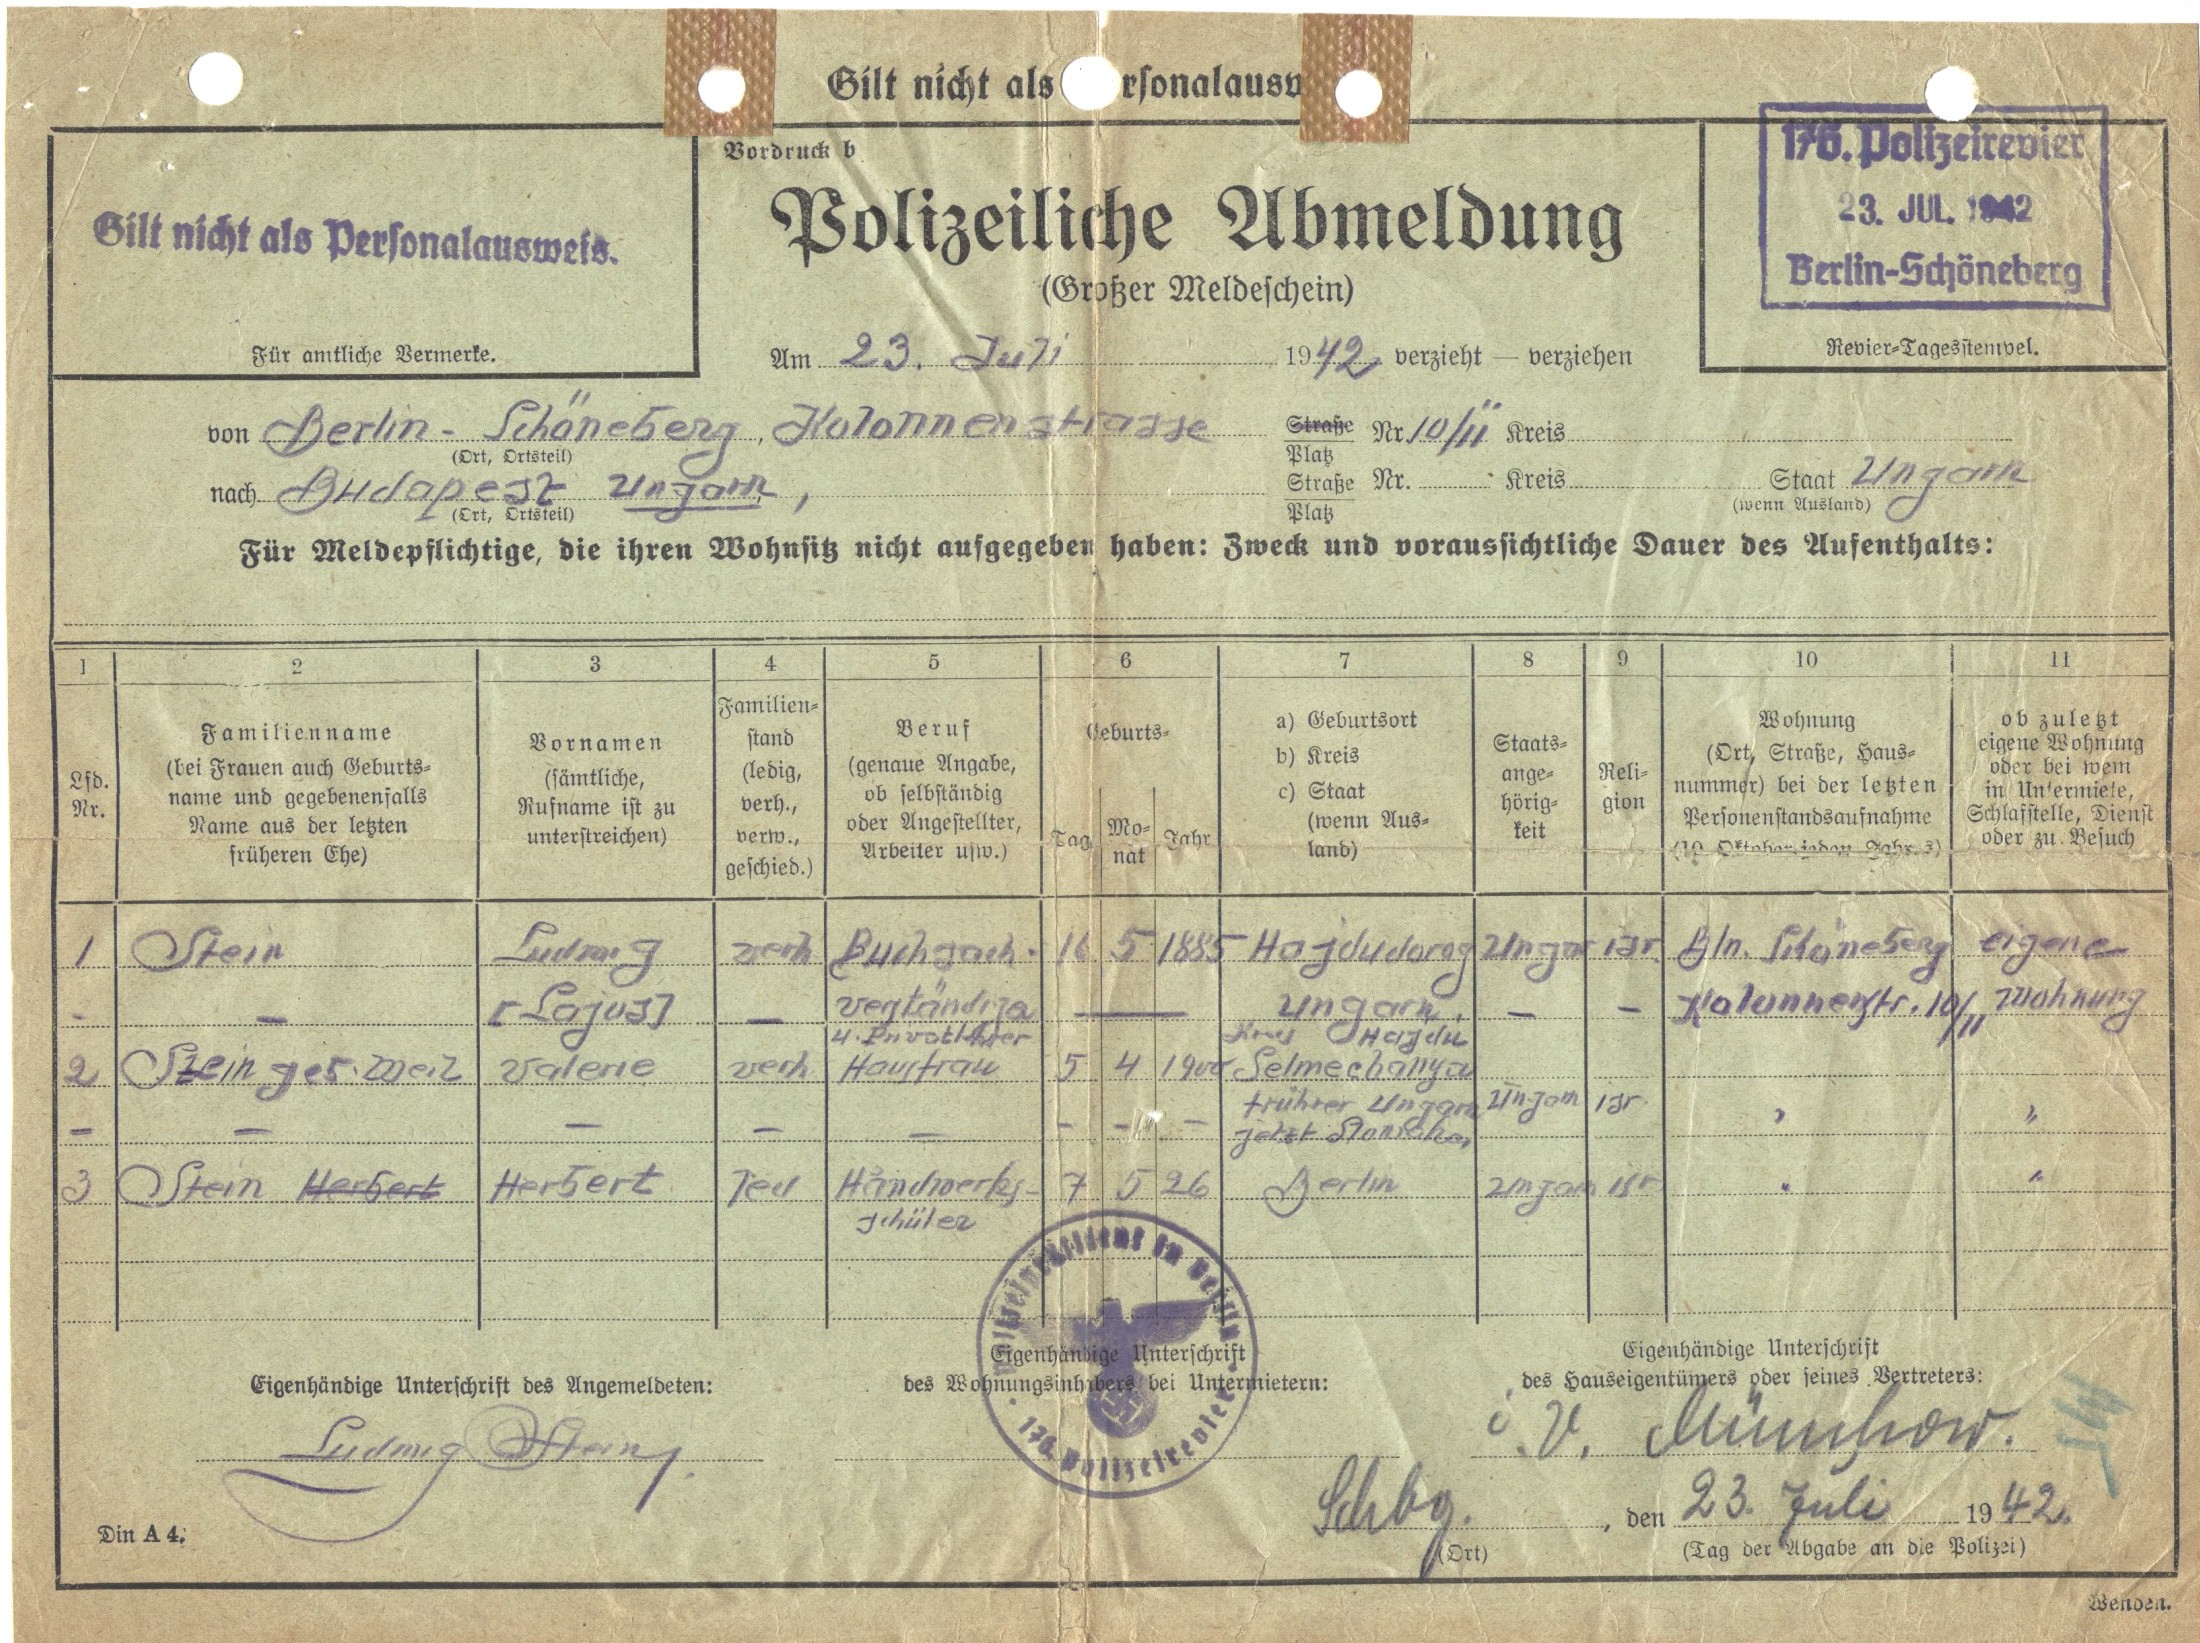 Gilt nicht als rsonalausw
176. Polizeirevier
23. JUL. 1942
Berlin-Schöneberg
Revier-Tagesstempel.
Gilt nicht als Personalausweis.
Für amtliche Vermerke.
Vordruck b
Polizeiliche Abmeldung
(Großer Meldeschein)
Am 23. Juli 1942 verzieht — verziehen
von Berlin - Schöneberg, Kolonnenstrasse Straße Platz Nr. 10/II Kreis
(Ort, Ortsteil)
nach Budapest Ungarn, Straße Platz Nr. Kreis Staat Ungarn
(Ort, Ortsteil) (wenn Ausland)
Für Meldepflichtige, die ihren Wohnsitz nicht aufgegeben haben: Zweck und voraussichtliche Dauer des Aufenthalts:
1 2 3 4 5 6 7 8 9 10 11
Lfd. Nr.
Familienname
(bei Frauen auch Geburts=
name und gegebenenfalls
Name aus der letzten
früheren Ehe)
Vornamen
(sämtliche,
Rufname ist zu
unterstreichen)
Familien=
stand
(ledig,
verh.,
verw.,
geschied.)
Beruf
(genaue Angabe,
ob selbständig
oder Angestellter,
Arbeiter usw.)
Geburts=
Tag Mo= nat Jahr
a) Geburtsort
b) Kreis
c) Staat
(wenn Aus=
land)
Staats=
ange=
hörig=
keit
Reli=
gion
Wohnung
(Ort, Straße, Haus=
nummer) bei der letzten
Personenstandsaufnahme
(10. Oktober jeden Jahres)
ob zuletzt
eigene Wohnung
oder bei wem
in Untermiete,
Schlafstelle, Dienst
oder zu Besuch
1 Stein Ludwig verh Buchsach- 16 5 1885 Hajdudorog Ungar isr. Bln. Schöneberg eigene
- — [Lajos] — verständiger — Ungarn, — – Kolonnenstr. 10/II Wohnung
u. Privatlehrer Kreis Hajdu
2 Stein geb. Weil Valerie verh Hausfrau 5 4 1900 Selmecbanya
früher Ungarn Ungarn isr. " "
– — — — — - - – jetzt
3 Stein Herbert Herbert led Handwerks- 7 5 26 Berlin Ungarn isr " "
schüler
Polizeipräsident in Berlin
176. Polizeirevier
Eigenhändige Unterschrift des Angemeldeten:
Ludwig Stein
Eigenhändige Unterschrift
des Wohnungsinhabers bei Untermietern:
Eigenhändige Unterschrift
des Hauseigentümers oder seines Vertreters:
i. V. Münchow.
Schbg. , den 23. Juli 1942.
(Ort) (Tag der Abgabe an die Polizei)
Din A 4.
Wenden.